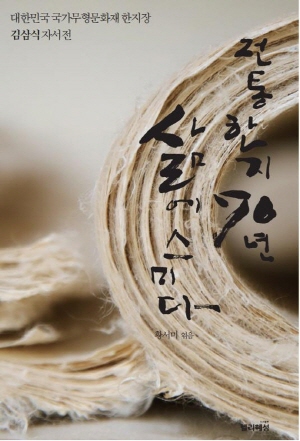 대한민국 국가무형문화재 한지장
김삼식 자서전
전통한지 70년
삶에 스미다
황서미 엮음